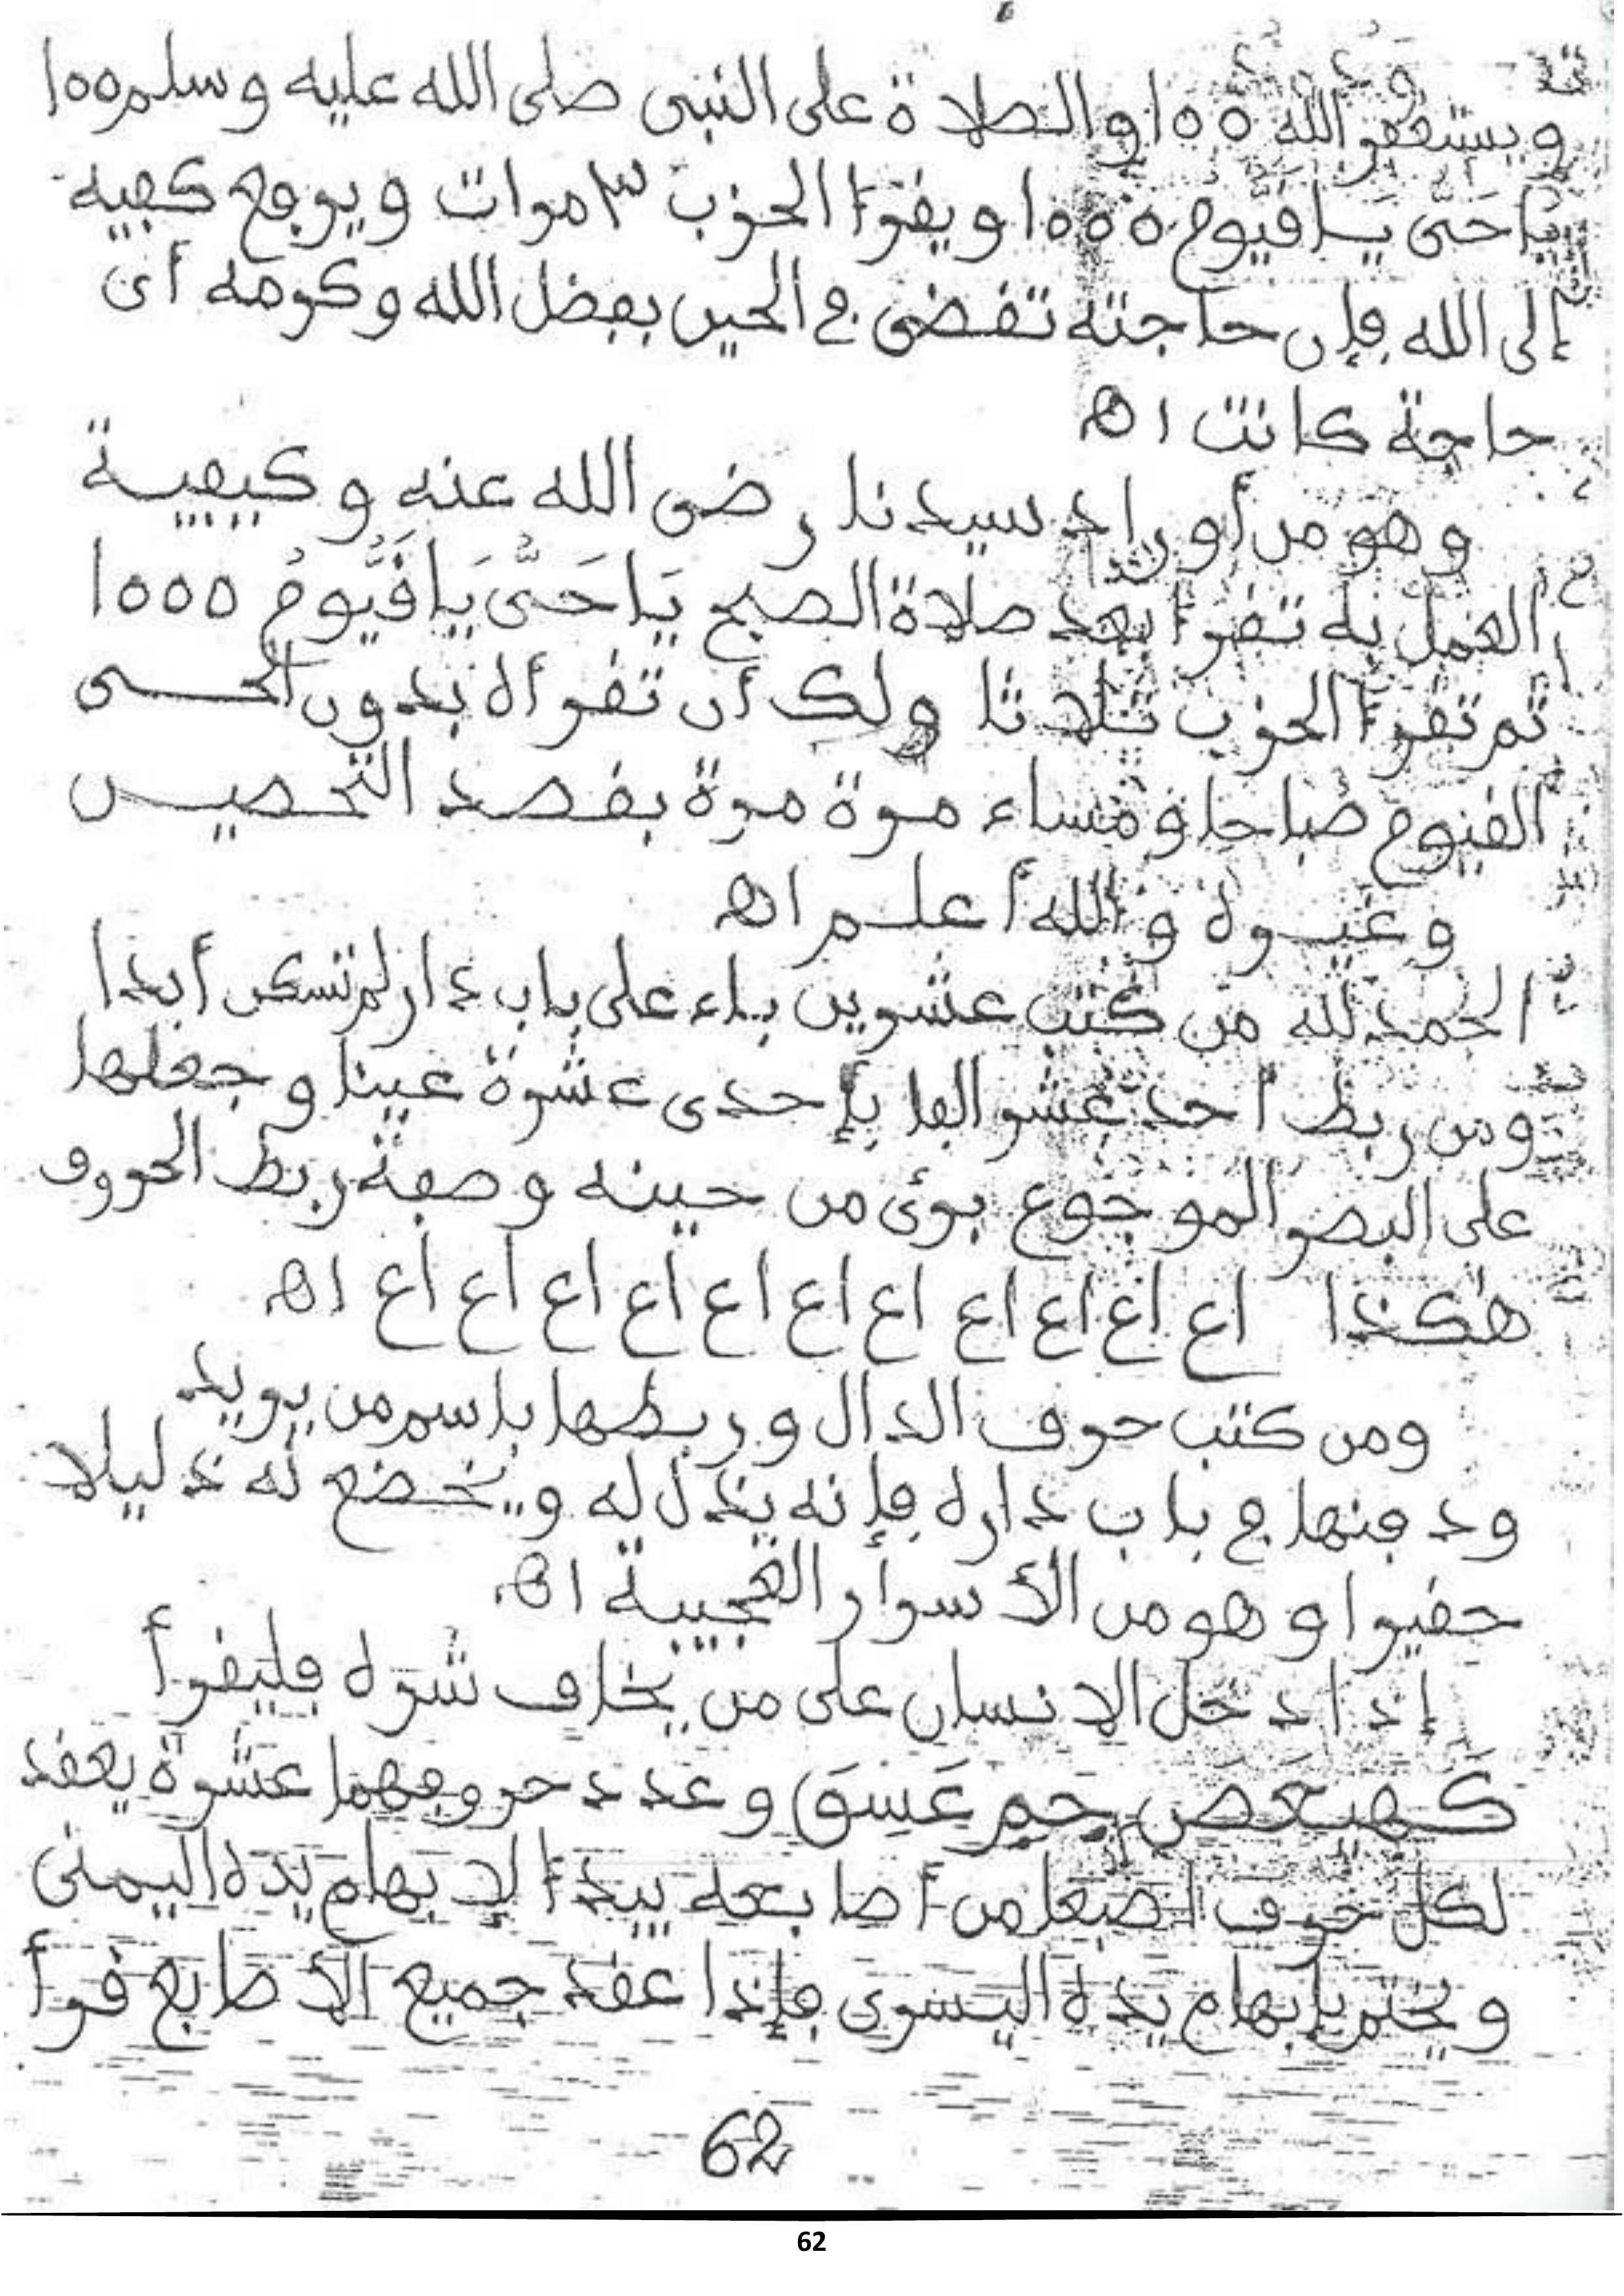 ويستغفر الله ١٠٠ والصلاة على النبى صلى الله عليه وسلم ١٠٠
يَا حَىُّ يَا قَيُّومُ ١٠٠٠ ويقرأ الحزب ٣ مرات ويرفع كفيه
إلى الله فإن حاجته تقضى فى الحين بفضل الله وكرمه أى
حاجة كانت اهـ
وهو من أوراد سيدنا رضى الله عنه وكيفية
العمل به تقرأ بعد صلاة الصبح يَا حَىُّ يَا قَيُّومُ ١٠٠٠
ثم تقرأ الحزب ثلاثا ولك أن تقرأه بدون الحى
القيوم صباحا ومساء مرة مرة بقصد التحصين
وغيره والله أعلم اهـ
الحمد لله من كتب عشرين باء على باب دار لم تسكن أبدا
ومن ربط احد عشر الفا بإحدى عشرة عينا وجعلها
على البصر الموجوع برئ من حينه وصفة ربط الحروف
هكذا اع اع اع اع اع اع اع اع اع اع اع اهـ
ومن كتب حرف الدال وربطها باسم من يريد
ودفنها فى باب داره فإنه يذل له ويخضع له ذليلا
حقيرا وهو من الأسرار العجيبة اهـ
إذا دخل الإنسان على من يخاف شره فليقرأ
كَهيعَصَ حَمِ عَسِقَ وعدد حروفهما عشرة يعقد
لكل حرف اصبعا من أصابعه يبدأ لإبهام يده اليمنى
ويختم بإبهام يده اليسرى فإذا عقد جميع الأصابع قرأ
62
62